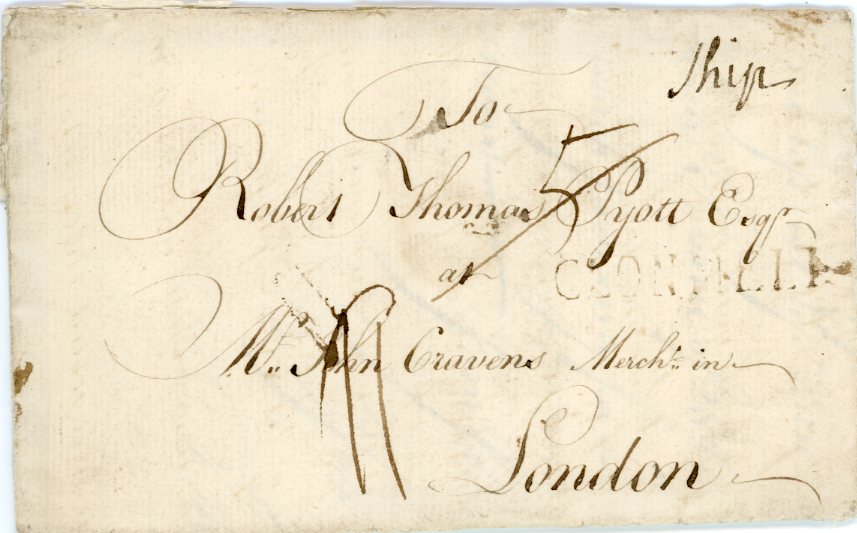 Ship
To
5
Robert Thomas Pyott Esqr.
at
CLONMELL
Mr. John Cravens Mercht. in
London